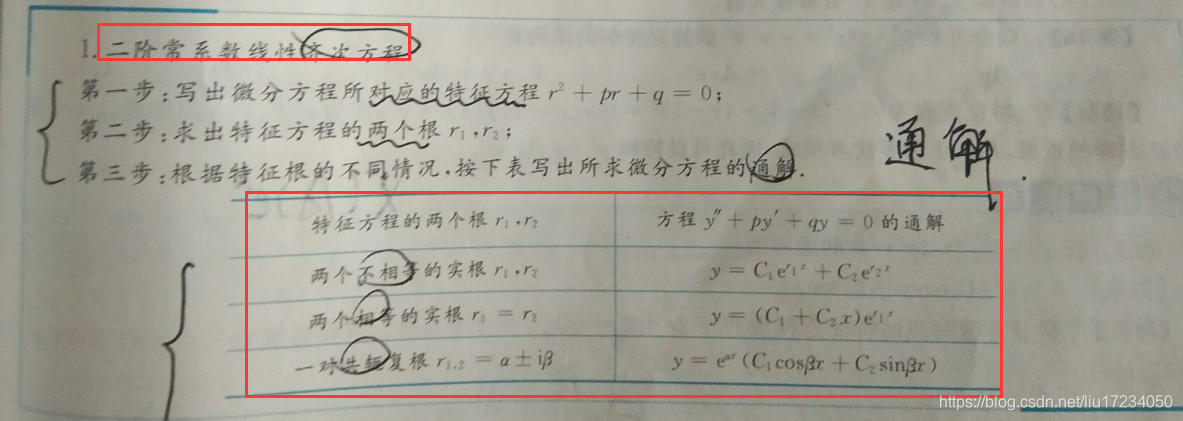 1. 二阶常系数线性齐次方程
第一步:写出微分方程所对应的特征方程 r² + pr + q = 0;
第二步:求出特征方程的两个根 r₁,r₂;
第三步:根据特征根的不同情况,按下表写出所求微分方程的通解.
通解.
特征方程的两个根 r₁,r₂ 方程 y″ + py′ + qy = 0 的通解
两个不相等的实根 r₁,r₂ y = C₁e^{r₁x} + C₂e^{r₂x}
两个相等的实根 r₁ = r₂ y = (C₁ + C₂x)e^{r₁x}
一对共轭复根 r₁,₂ = α ± iβ y = e^{αx}(C₁cosβx + C₂sinβx)
https://blog.csdn.net/liu17234050